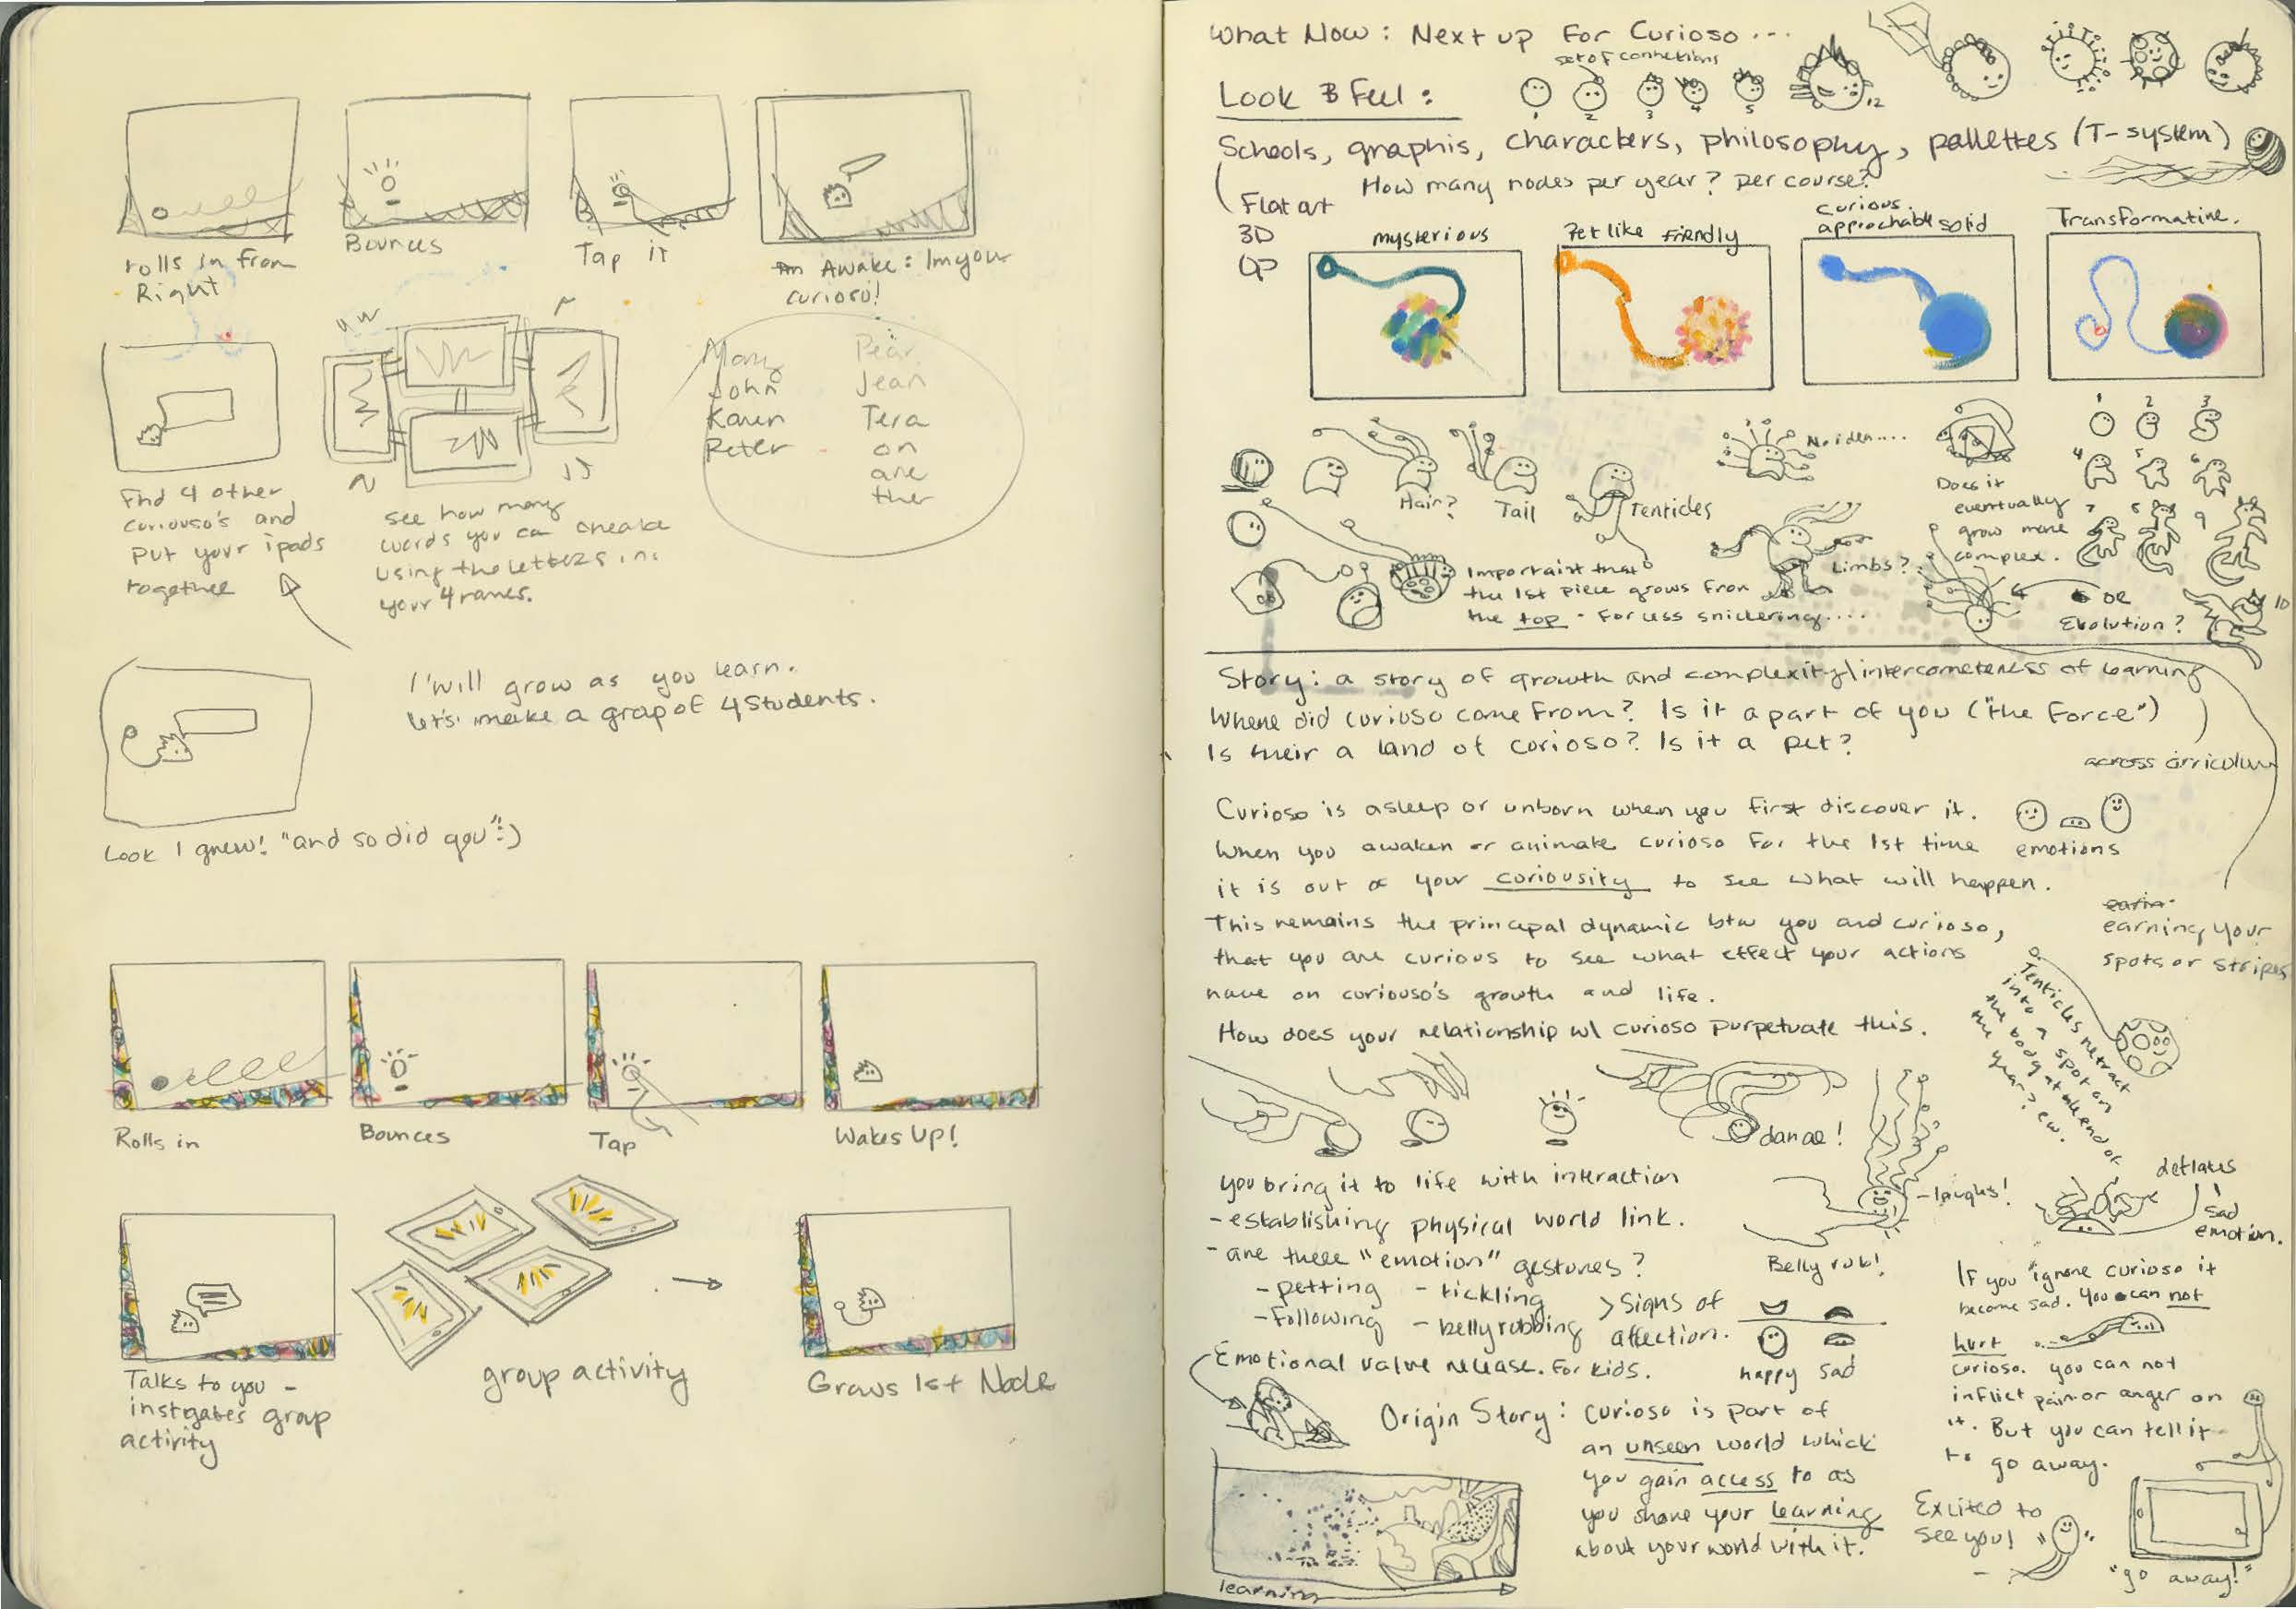 rolls in from
Right
Bounces
Tap it
Awake: Im your
curioso!
Mary
John
Karen
Peter
Pear
Jean
Tera
on
are
ther
Find 4 other
curiouso's and
put your ipads
together
see how many
words you can create
using the letters in
your 4 names.
I will grow as you learn.
let's make a grop of 4 students.
Look I grew! "and so did you" :)
Rolls in
Bounces
Tap
Wakes Up!
Talks to you -
instigates group
activity
group activity
Grows 1st Node
What Now: Next up For Curioso ...
set of connections
Look & Feel:
1
2
3
4
5
12
Schools, graphis, characters, philosophy, pallettes (T-system)
How many nodes per year? per course?
Flat art
3D
mysterious
Pet like friendly
curious
approchable solid
Transformative.
Hair?
Tail
Tenticles
No idea....
Limbs?
Does it
eventually
grow more
complex.
1 2 3
4 5 6
7 8 9
10
or
Evolution?
Important that
the 1st piece grows from
the top - For less snickering....
Story: a story of growth and complexity/interconneteness of learning
Where did curioso come From? Is it a part of you ("the Force")
Is their a land of curioso? Is it a pet?
across curriculum
Curioso is asleep or unborn when you first discover it.
When you awaken or animate curioso For the 1st time
emotions
it is out of your curiousity to see what will happen.
This remains the principal dynamic btw you and curioso,
that you are curious to see what effect your actions
have on curiouso's growth and life.
How does your relationship w/ curioso purpetuate this.
earning your
spots or stripes
Tenticles retract
into a spot on
the body at the end of
the year? ew.
dance!
you bring it to life with interaction
- establishing physical world link.
- are there "emotion" gestures?
- petting - tickling
- Following - bellyrubbing
> Signs of
affection.
Emotional value release. For kids.
- laughs!
Belly rub!
happy sad
deflates
sad
emotion.
If you ignore curioso it
become sad. You can not
hurt
curioso. you can not
inflict pain or anger on
it. But you can tell it
to go away.
Origin Story: curioso is part of
an unseen world which
you gain access to as
you share your learning
about your world with it.
learning
Excited to
see you!
"go away!"